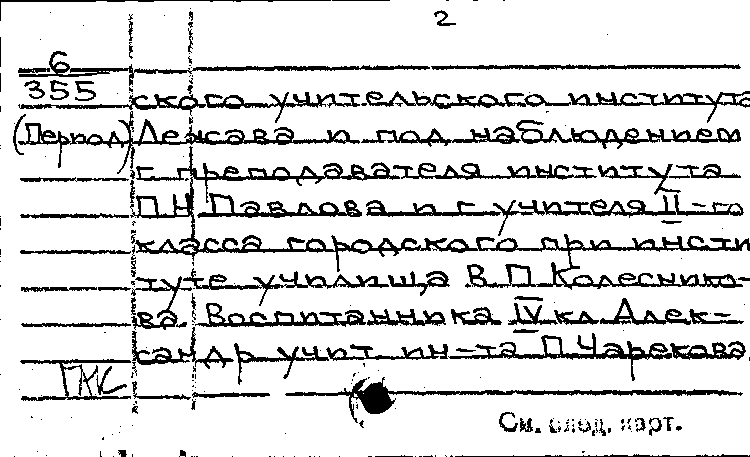 2
6
355
ского учительского института
(Период) Лежава и под наблюдением
г. преподавателя института
П.Н. Павлова и г. учителя II-го
класса городского при инсти
туте училища В.П. Колеснико-
ва. Воспитанника IV кл. Алек-
сандр. учит. ин-та П. Чарекова,
См. след. карт.